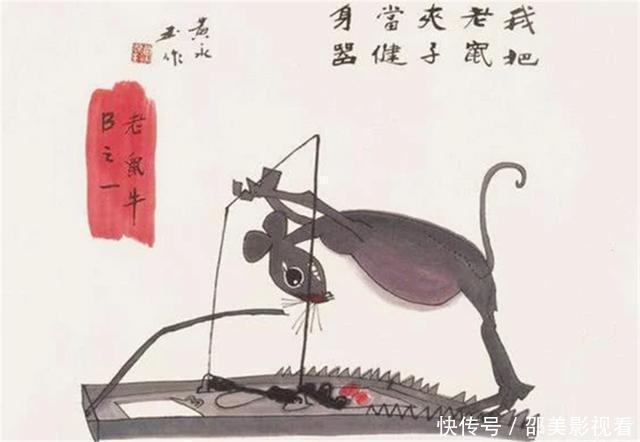 我把
老鼠
夾子
當健
身器
黄永
玉作
老鼠牛
B之一
快传号 / 邵美影视看